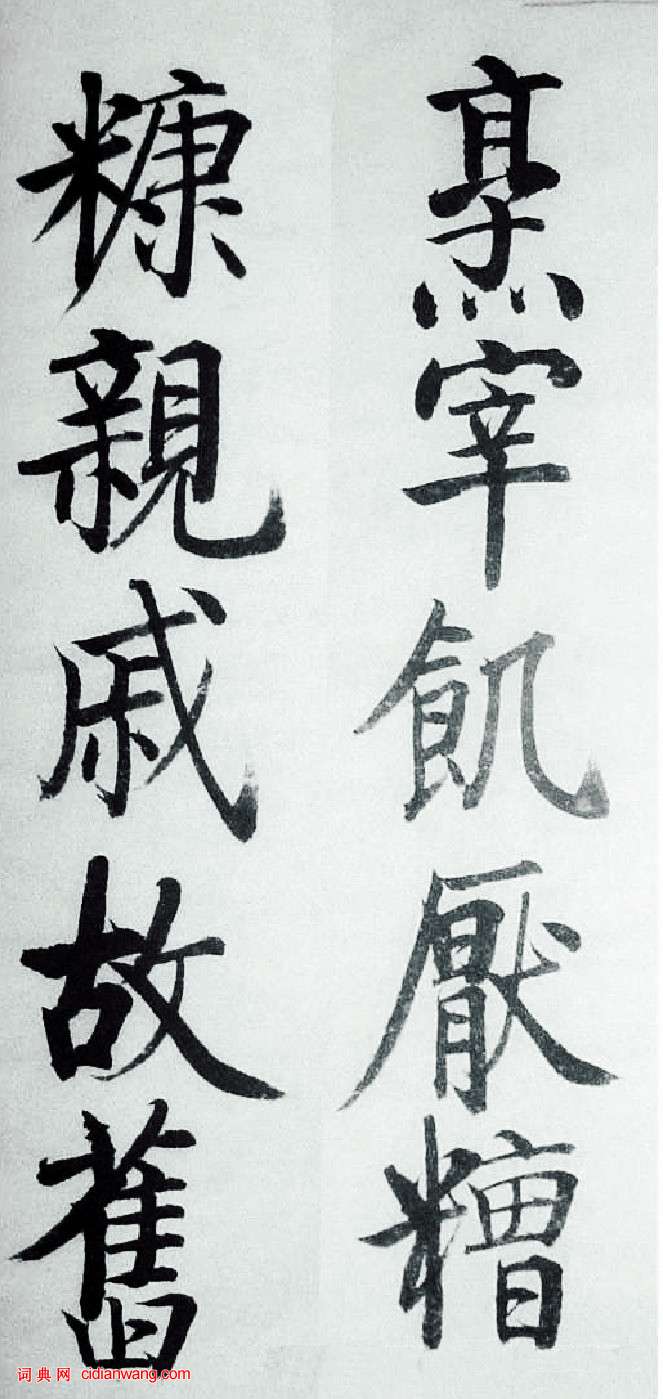 烹宰飢厭糟
糠親戚故舊
词典网 cidianwang.com